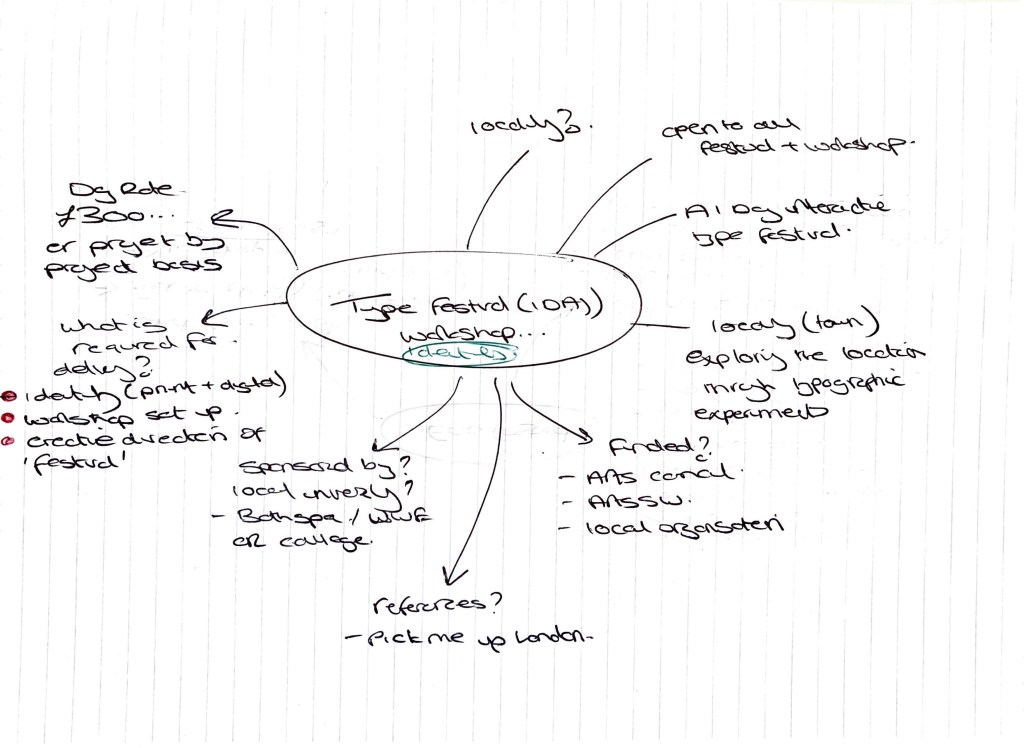 locality?
open to all
festival + workshop.
A 1 Day interactive
type festival.
Day Rate
£300...
or project by
project basis
Type Festival (1 DAY)
workshop...
identity
what is
required for
delivery?
identity (print + digital)
workshop set up.
creative direction of
'festival'
locality (town)
exploring the location
through typographic
experiments
Sponsored by?
local university?
- Bath spa / UWE
or college.
funded?
- Arts council.
- Arts SW.
- local organisation
references?
- Pick me up London.